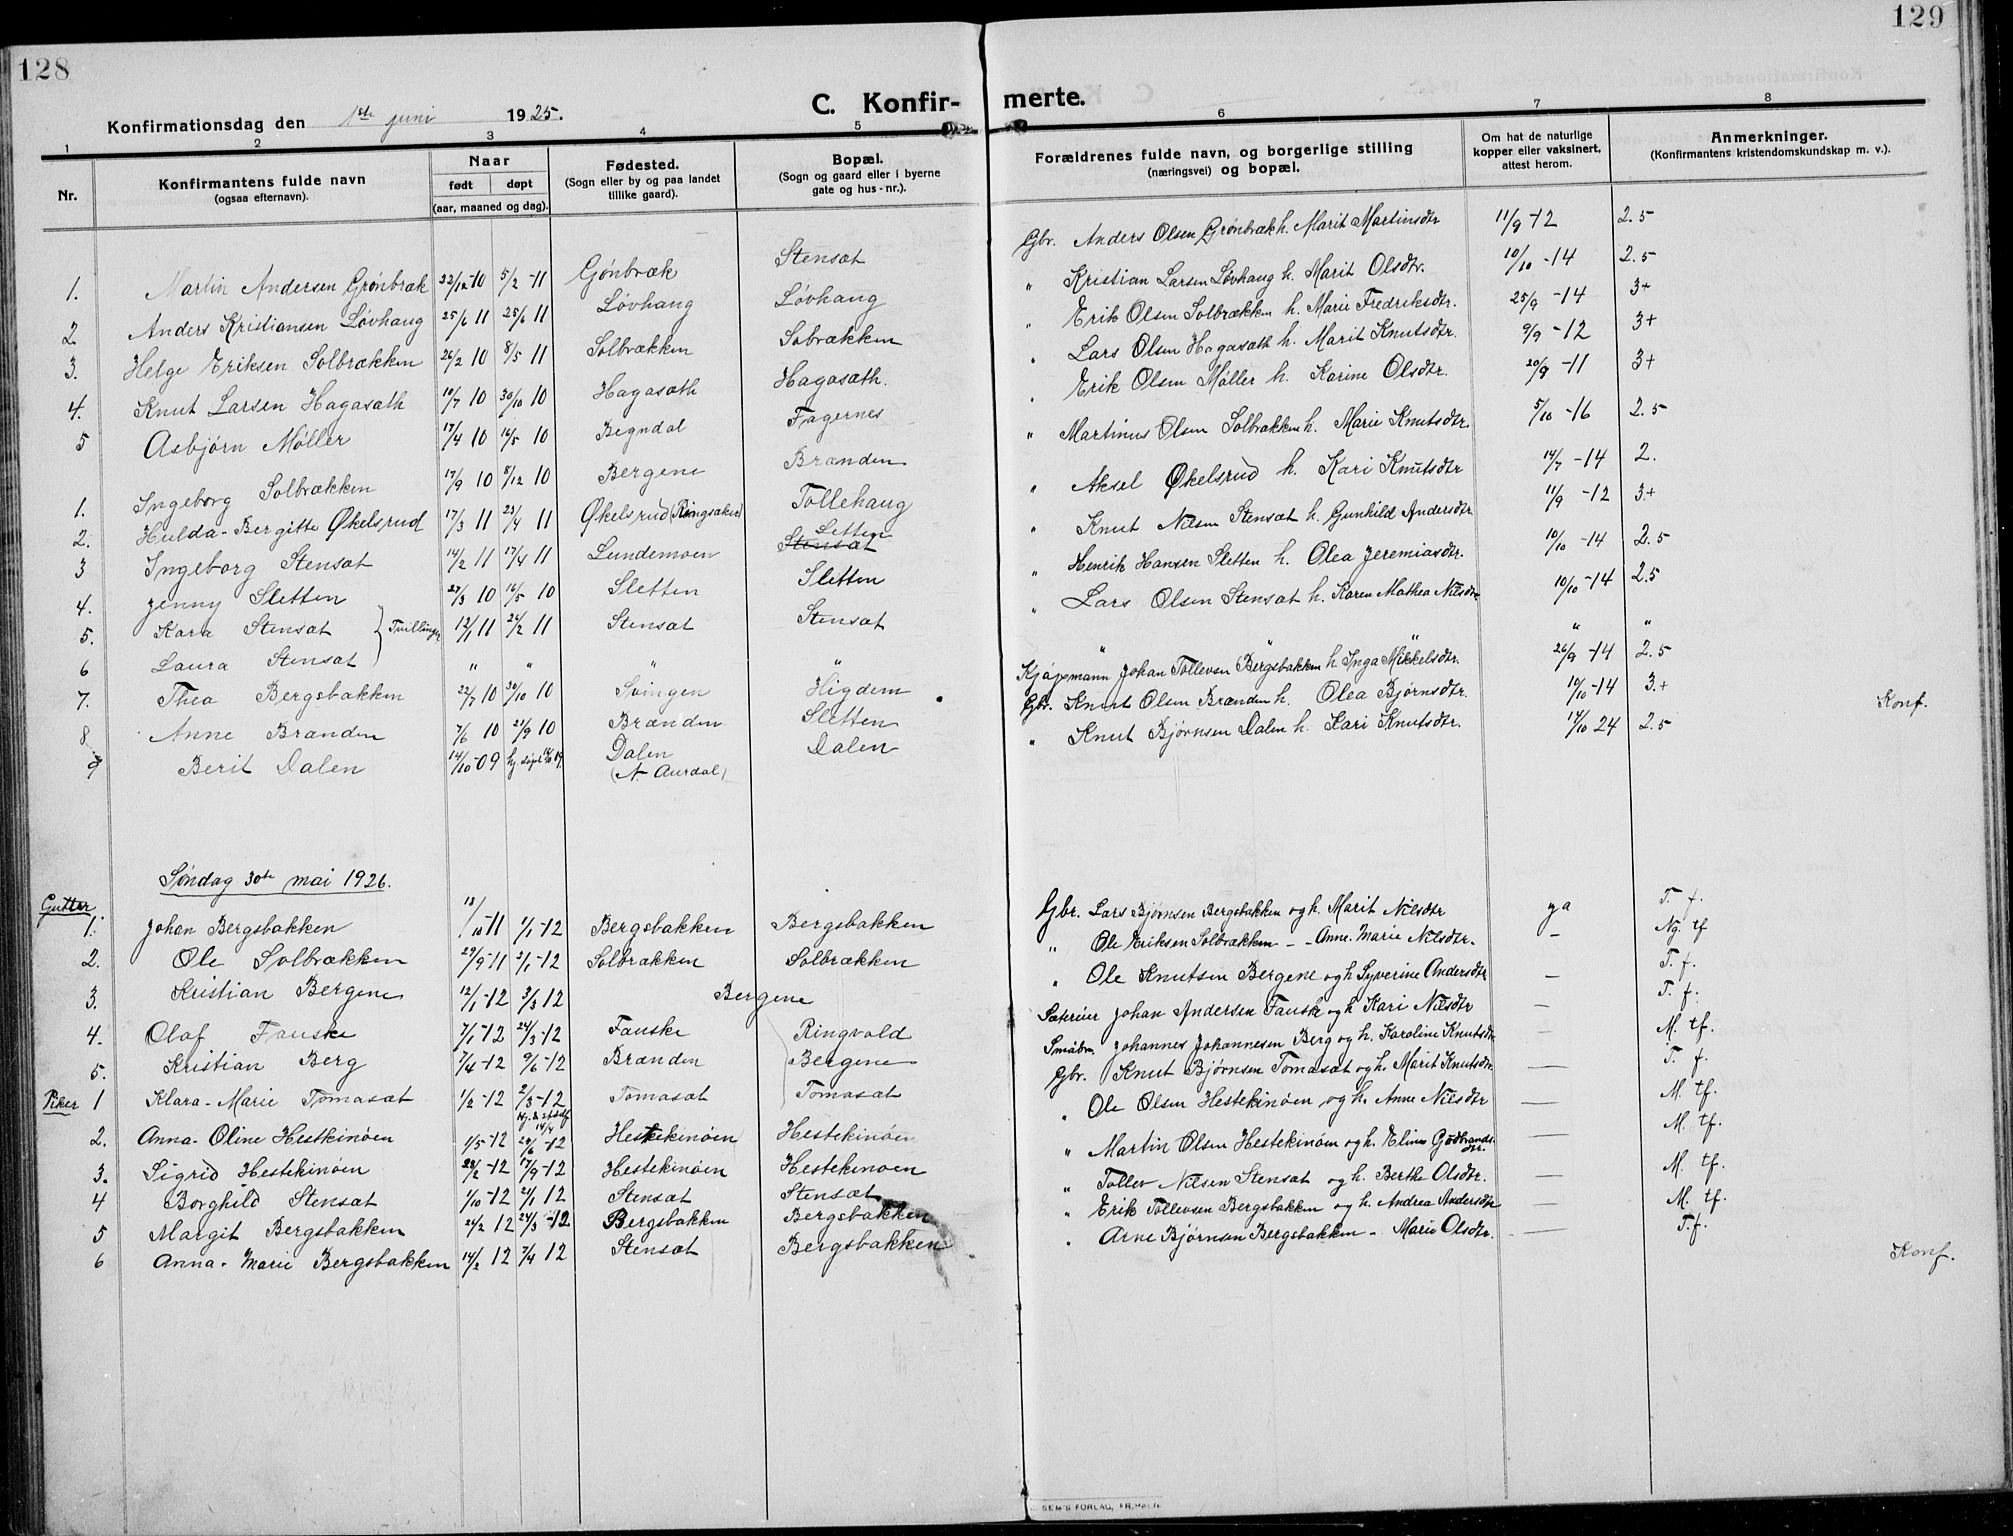 128
129
Konfirmationsdag den 1ste juni 1925.
C. Konfir- merte.
1 2 3 4 5 6 7 8
Nr.
Konfirmantens fulde navn
(ogsaa efternavn).
Naar
født døpt
(aar, maaned og dag).
Fødested.
(Sogn eller by og paa landet
tillike gaard).
Bopæl.
(Sogn og gaard eller i byerne
gate og hus-nr.).
Forældrenes fulde navn, og borgerlige stilling
(næringsvei) og bopæl.
Om hat de naturlige
kopper eller vaksinert,
attest herom.
Anmerkninger.
(Konfirmantens kristendomskundskap m. v.).
1. Martin Andersen Grønbræk 22/12-10 5/2-11 Gønbræk Stensæt Gbr. Anders Olsen Grønbræk h. Marit Martinsdtr 11/9-12 2.5
2 Anders Kristiansen Løvhaug 25/6 11 25/6 11 Løvhaug Løvhaug " Kristian Larsen Løvhaug h. Marit Olsdtr. 10/10-14 2.5
3. Helge Eriksen Solbrækken 26/2 10 8/5 11 Solbrækken Sobrækken " Erik Olsen Solbrækken h. Marie Fredriksdtr. 25/9-14 3+
4. Knut Larsen Hagasæth 10/7 10 30/10 10 Hagasæth Hagasæth. " Lars Olsen Hagasæth h. Marit Knutsdtr. 9/9-12 3+
5 Asbjørn Møller 17/4 10 16/5 10 Begndal Fagernes " Erik Olsen Møller h. Karine Olsdtr. 20/9-11 3+
1. Ingeborg Solbrækken 17/9 10 8/12 10 Bergene Brænden " Martinus Olsen Solbrækken h. Marie Knutsdtr. 5/10-16 2.5
2. Hulda-Bergitte Økelsrud 17/3 11 23/4 11 Økelsrud (Ringsaker) Tollehaug " Aksel Økelsrud h. Kari Knutsdtr 14/7-14 2.
3 Ingeborg Stensæt 14/2 11 17/4 11 Lundemoen Stensæt Sletten " Knut Nilsen Stensæt h. Gunhild Andersdtr. 11/9-12 3+
4. Jenny Sletten 27/3 10 16/5 10 Sletten Sletten " Henrik Hansen Sletten h. Olea Jeremiasdtr. 10/10-14 2.5
5. Kara Stensæt } Tvillinger 12/1 11 26/2 11 Stensæt Stensæt " Lars Olsen Stensæt h. Karen Mathea Nilsdtr 10/10-14 2.5
6 Laura Stensæt " " " " " " " "
7. Thea Bergsbakken 22/7 10 30/10 10 Svingen Higdem Kjøpmann Johan Tollevsen Bergsbakken h. Inga Mikkelsdtr. 26/9-14 2.5
8 Anne Brænden 7/6 10 21/9 10 Brænden Sletten Gbr. Knut Olsen Brænden h. Olea Bjørnsdtr. 10/10-14 3.+
9 Berit Dalen 14/10-09 hj.døpt Dalen (N. Aurdal) Dalen " Knut Bjørnsen Dalen h. Kari Knutsdtr. 14/10 24 2.5 Konf.
Søndag 30te mai 1926.
Gutter
1. Johan Bergsbakken 18/10-11 1/1-12 Bergsbakken Bergsbakken Gbr. Lars Bjørnsen Bergsbakken og h. Marit Nilsdtr ya T. f.
2. Ole Solbrækken 29/9-11 1/1-12 Solbrækken Solbrækken " Ole Eriksen Solbrækken - - Anne-Marie Nilsdtr. — Ng. tf
3. Kristian Bergene 12/1-12 3/3 12 Bergene " Ole Knutsen Bergene og h Syverine Andersdtr — T. f.
4. Olaf Fauske 7/1-12 24/3-12 Fauske Ringvold Sæterier Johan Andersen Fauske og h Kari Nilsdtr — T. f.
5. Kristian Berg 7/4-12 9/6-12 Brænden Bergene Småbr. Johannes Johannesen Berg og h. Karoline Knutsdtr — M. tf.
Piker 1 Klara-Marie Tomasæt 1/2-12 2/3-12 Tomasæt Tomasæt Gbr. Knut Bjørnsen Tomasæt og h. Marit Knutsdtr. — T. f.
2. Anna-Oline Hestkinøen 1/5-12 20/6-12 Hestekinøen Hestekinøen " Ole Olsen Hestekinøen og h. Anne Nilsdtr — M. tf.
3. Sigrid Hestekinøen 28/2-12 17/9-12 Hestekinøen Hestekinoen " Martin Olsen Hestekinøen og h. Eline Gudbrandsdtr. — M. tf.
4 Borghild Stensæt 1/10-12 21/1 12 Stensæt Stensæt " Tollev Nilsen Stensæt og h. Berthe Olsdtr. — M. tf.
5 Margit Bergsbakken 26/2 12 24/3-12 Bergsbakken Bergsbakken " Erik Tollevsen Bergsbakken og h. Andrea Andersdtr — M. tf.
6 Anna-Marie Bergsbakken 14/2 12 7/4 12 Stensæt Bergsbakken " Arne Bjørnsen Bergsbakken - Marie Olsdtr. — T.f. Konf.
SEM'S FORLAG, FR.HALD